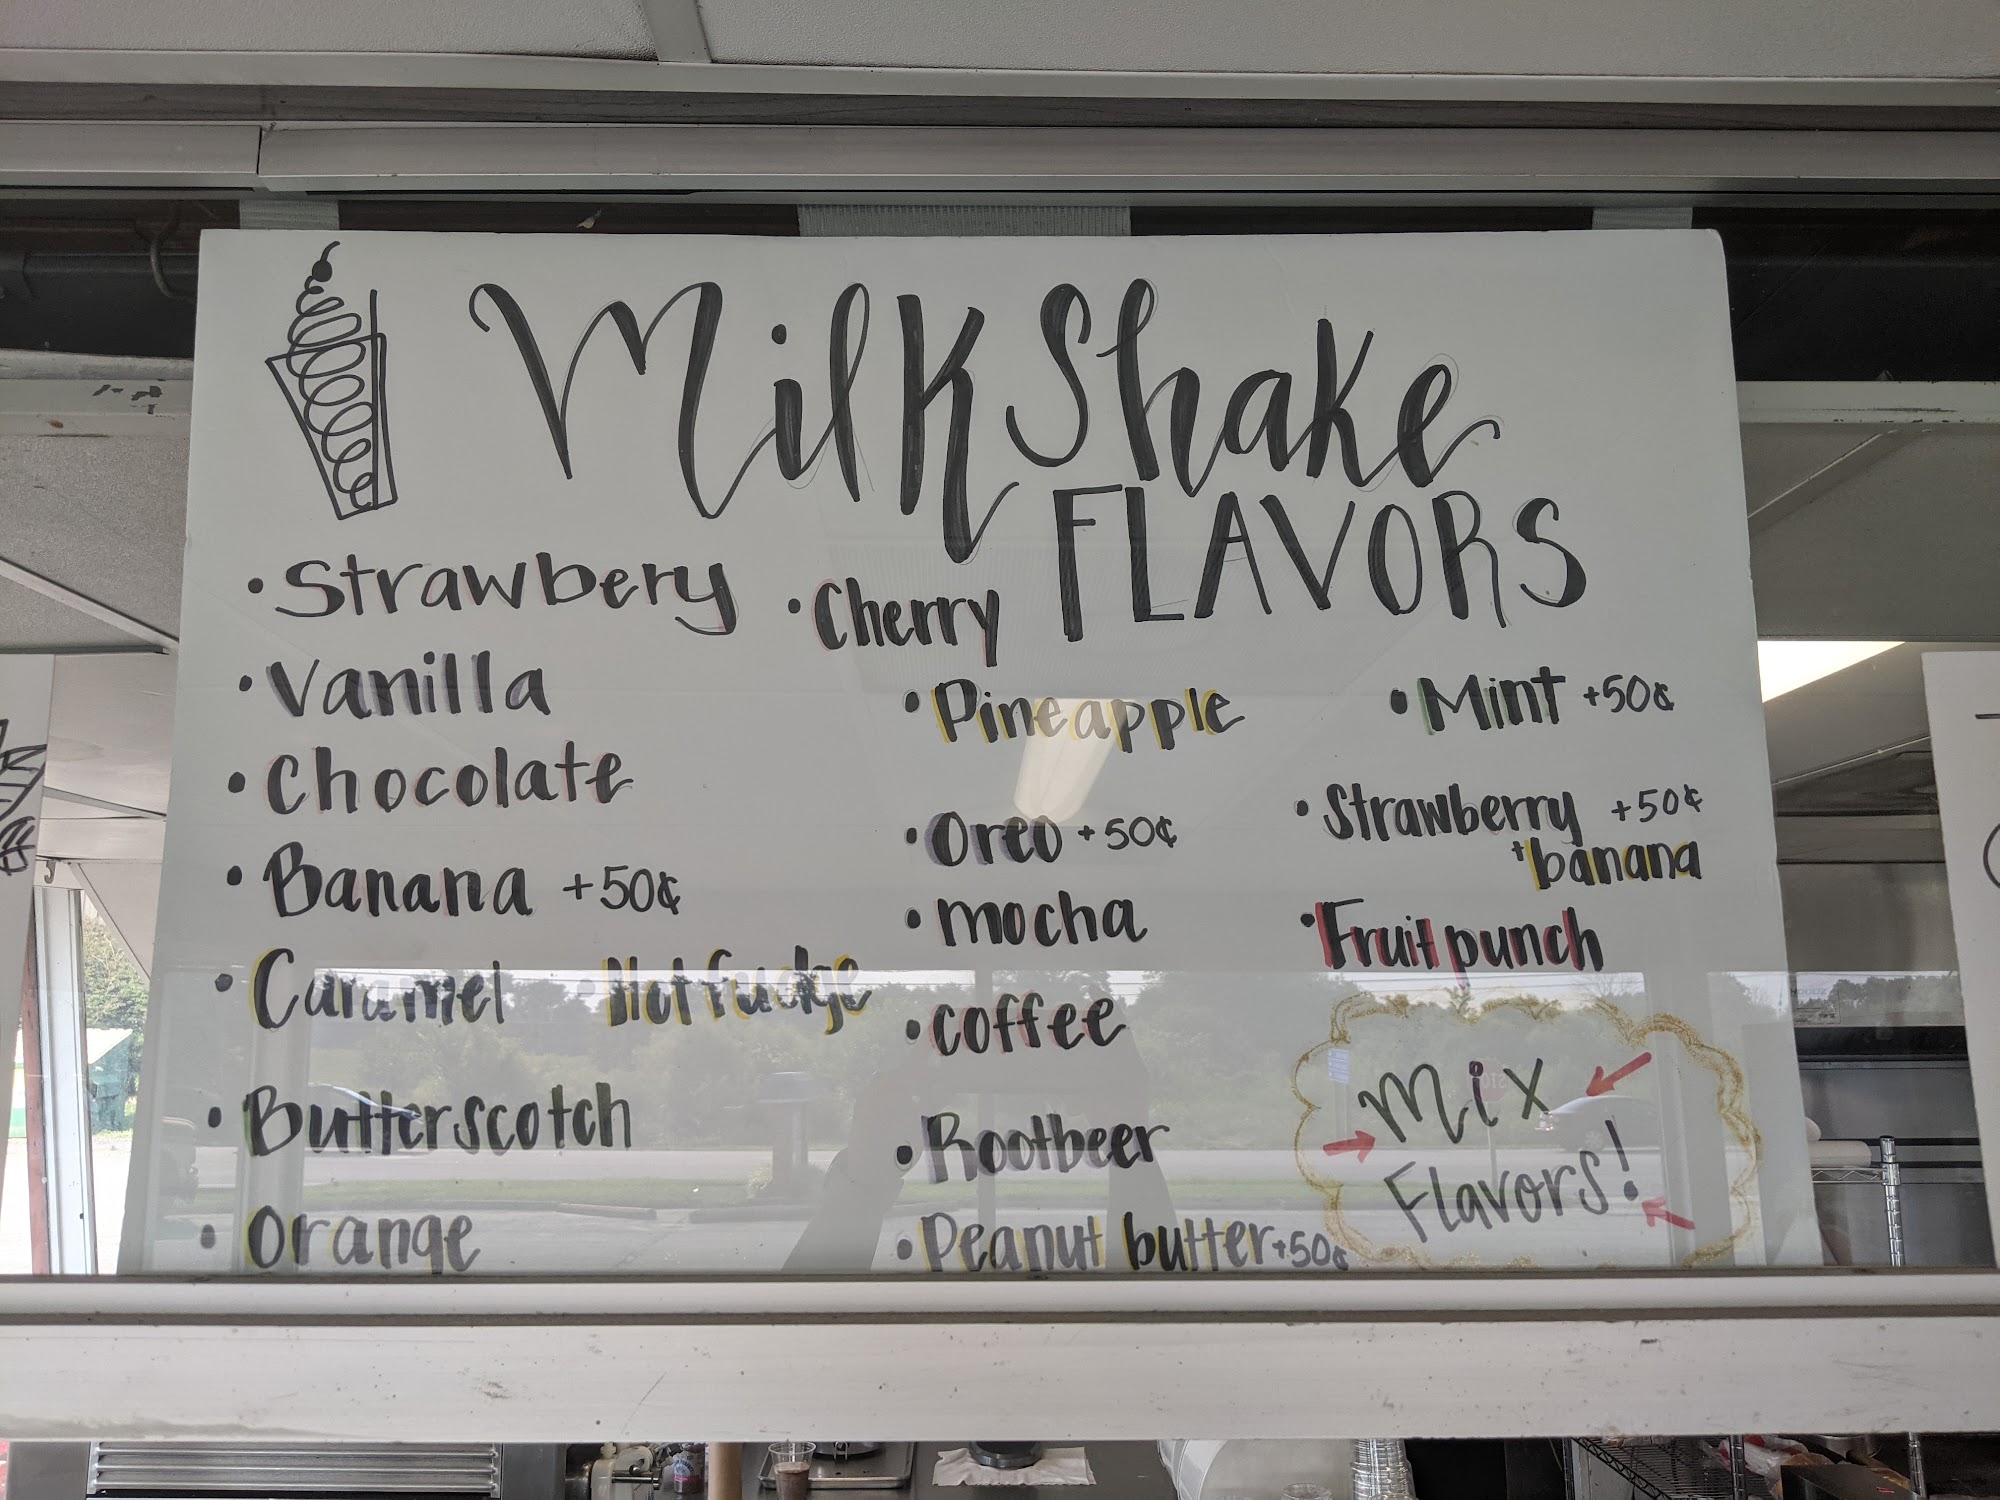 MilkShake
FLAVORS
• Strawbery
• Vanilla
• Chocolate
• Banana +50¢
• Caramel
• Hot fudge
• Butterscotch
• Orange
• Cherry
• Pineapple
• Oreo +50¢
• mocha
• coffee
• Rootbeer
• Peanut butter +50¢
• Mint +50¢
• Strawberry +50¢
+ banana
• Fruit punch
Mix
Flavors!